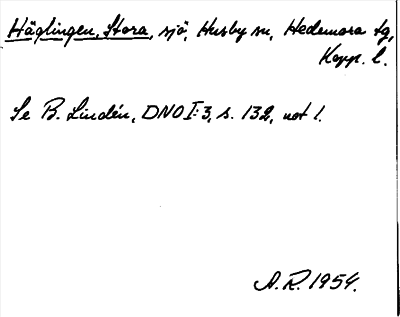 Häglingen, Stora, sjö, Husby sn, Hedemora tg,
Kopp. l.
Se B. Lindén, DNO I:3, s. 132, not 1.
A.R. 1954.